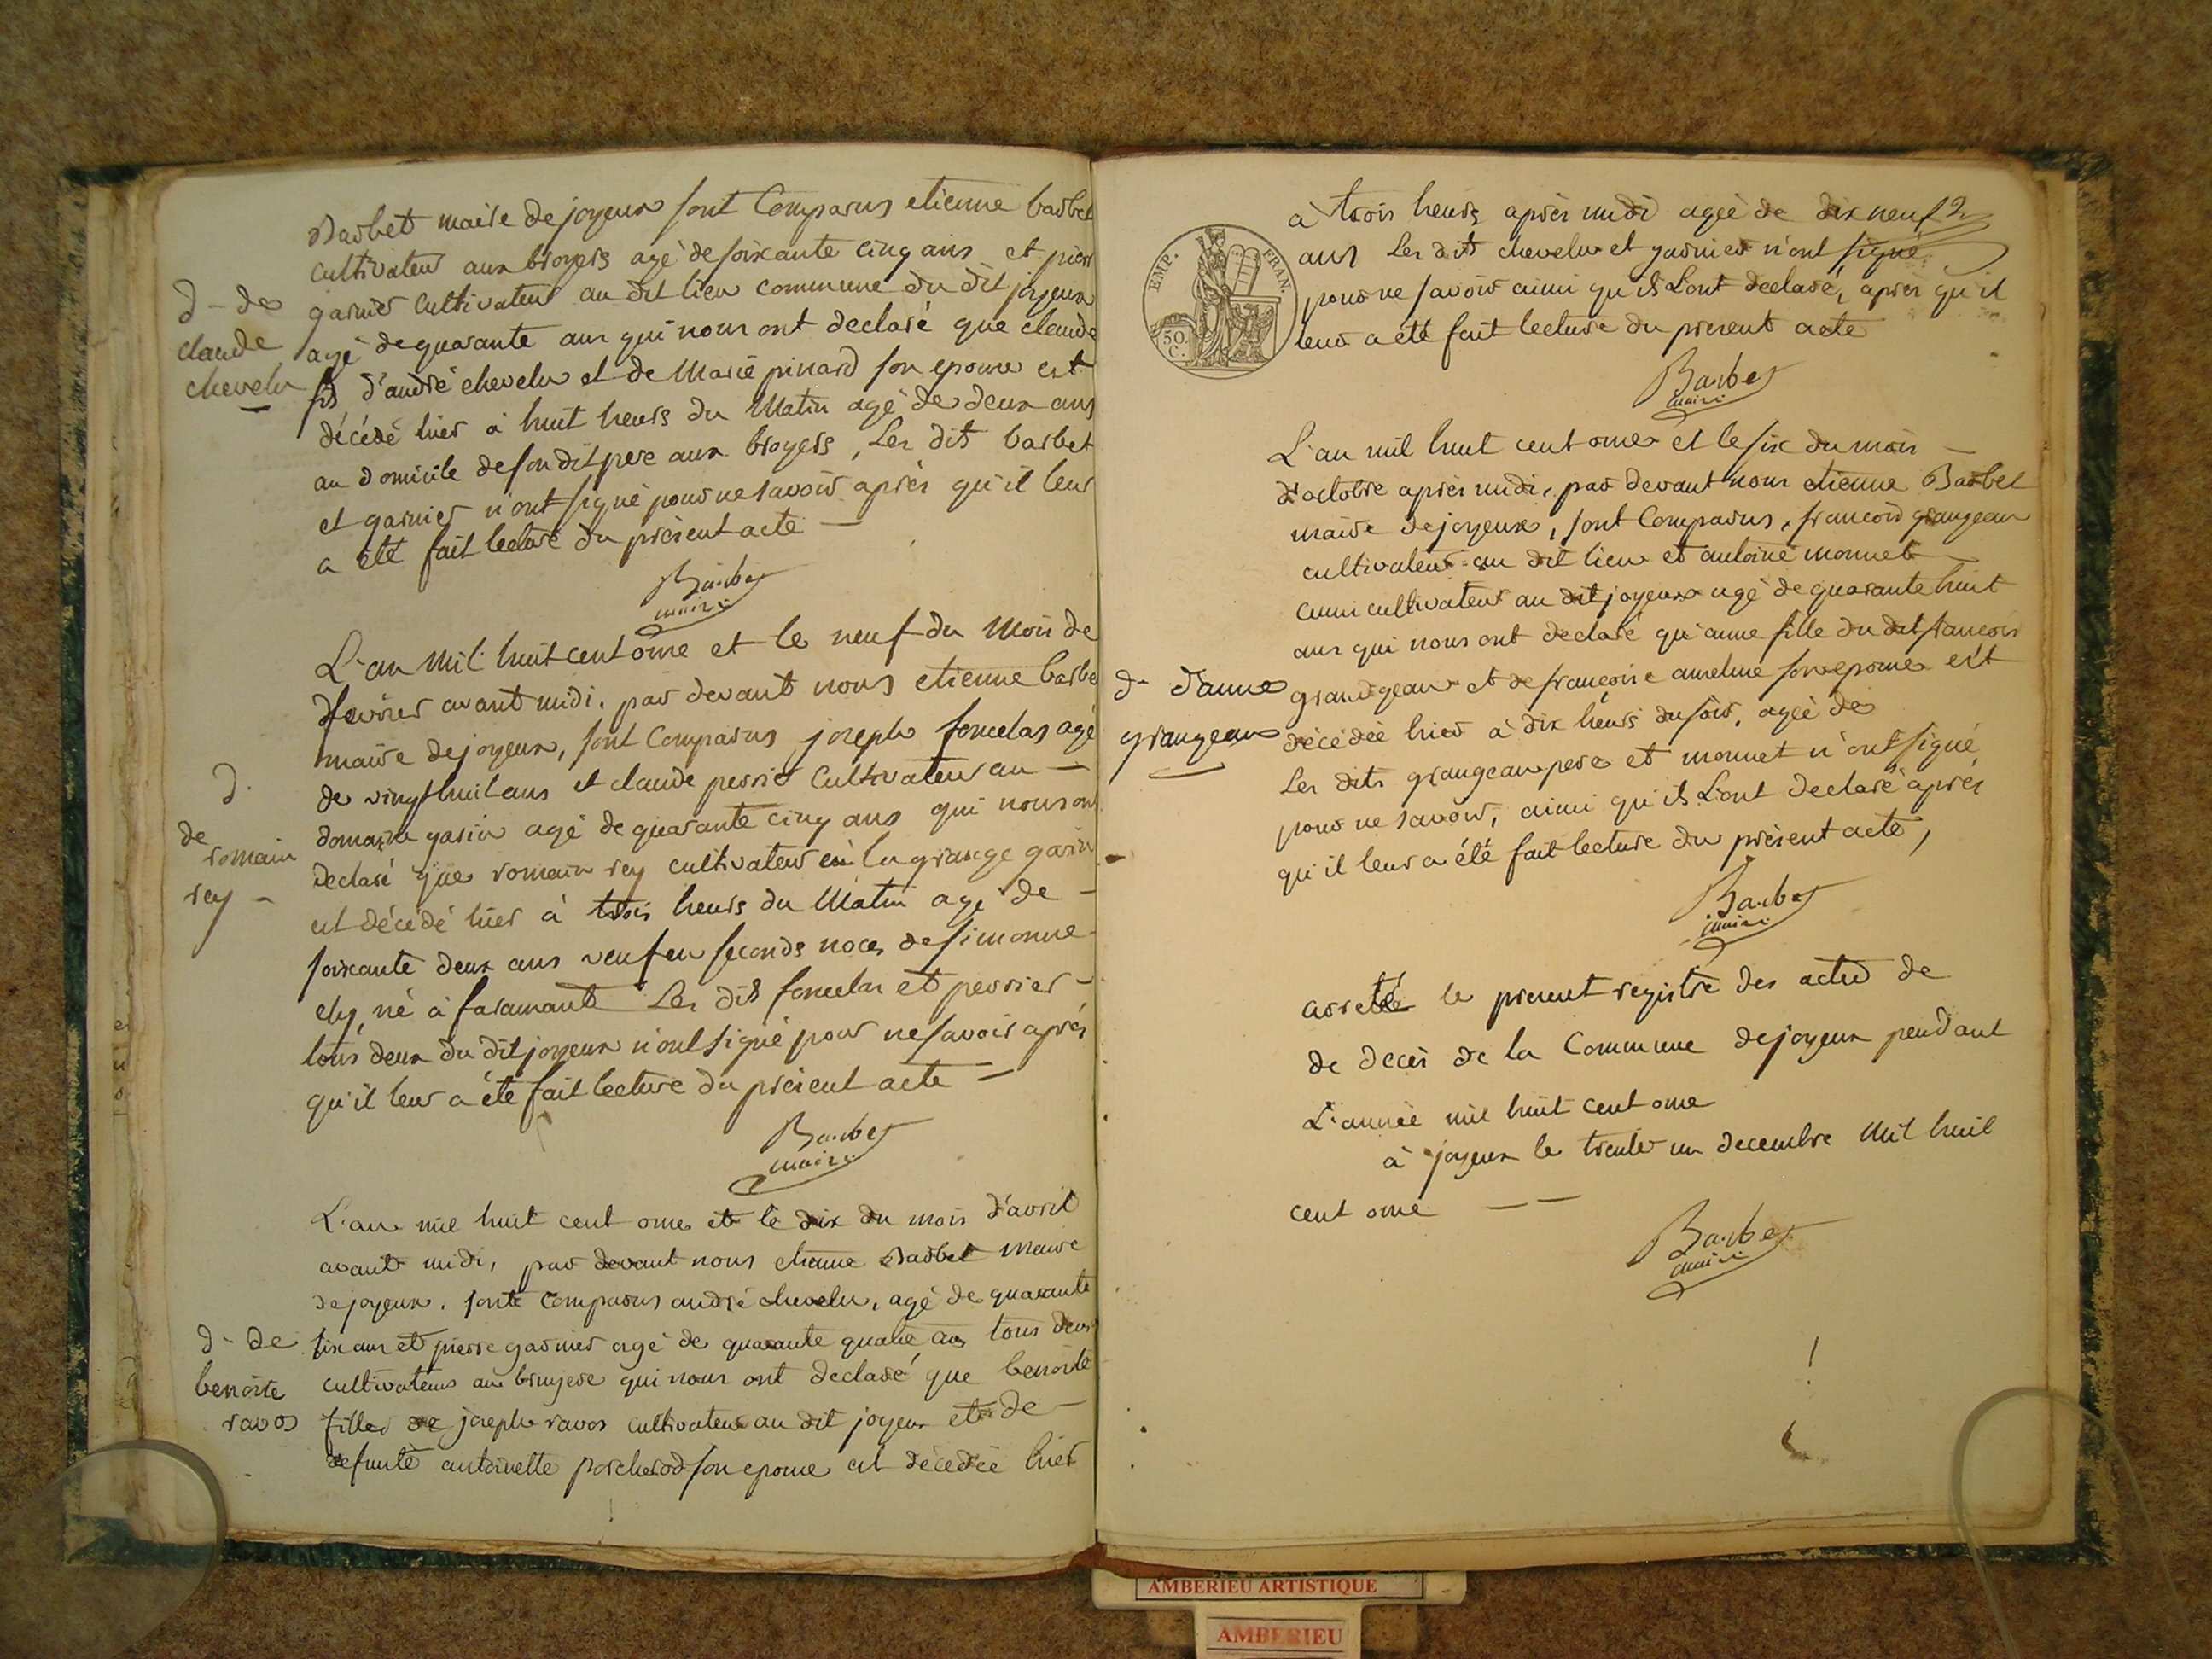 Barbet maire de joyeux sont Comparus etienne barbet
cultivateur aux broyers agé de soixante cinq ans et pierre
d - de
claude
chevelu
garnier cultivateur au dit lieu commune du dit joyeux
agé de quarante ans qui nous ont declaré que claude
fils d'andré chevelu et de Marie pinard son epouse est
décédé hier à huit heurs du Matin agé de deux ans
au domicile de son dit pere aux broyers, Les dits barbet
et garnier n'ont signé pour ne savoir après qu'il leur
a été fait lecture du présent acte —
Barbet
maire
L'an mil huit cent onze et le neuf du Mois de
fevrier avant midi, par devant nous etienne barbet
maire de joyeux, sont Comparus joseph foncelas agé
de vingt huit ans et claude perrier Cultivateur au —
d.
de romain
rey -
domaine garin agé de quarante cinq ans qui nous ont
declaré que romain rey cultivateur en la grange garin
est décédé hier à trois heurs du Matin agé de -
soixante deux ans veuf en seconds noces de simonne
ely, né à faramant Les dits foncelas et perrier -
tous deux du dit joyeux n'ont signé pour ne savoir après
qu'il leur a été fait lecture du présent acte —
Barbet
maire
L'an mil huit cent onze et le dix du mois d'avril
avant midi, par devant nous etienne Barbet maire
de joyeux, sont Comparus andré chevelu, agé de quarante
d - de
benoite
ravos
six ans et pierre garnier agé de quarante quatre ans tous deux
cultivateurs au bruyere qui nous ont declaré que benoite
fille de joseph ravos cultivateur au dit joyeux et de -
defunte antoinette porcherod son epouse est décédée hier
2
à trois heurs après midi agée de dix neuf
ans Les dits chevelu et garnier n'ont signé
pour ne savoir ainsi qu'ils L'ont declaré, après qu'il
leur a été fait lecture du present acte
EMP. FRAN.
50 C.
Barbet
maire
L'an mil huit cent onze et le six du mois —
d'octobre après midi, par devant nous etienne Barbet
maire de joyeux, sont Comparus, francois grangean
cultivateur au dit lieu et antoine monnet
aussi cultivateur au dit joyeux agé de quarante huit
ans qui nous ont declaré qu'anne fille du dit francois
d - d'anne
grangean
grandgean et de françoise ameline son epouse est
décédée hier à dix heurs du soir, agée de
Les dits grangean pere et monnet n'ont signé
pour ne savoir, ainsi qu'ils L'ont declaré après
qu'il leur a été fait lecture du présent acte,
Barbet
maire
arreté le present registre des actes de
de decès de la Commune de joyeux pendant
L'année mil huit cent onze
à joyeux le trente un decembre Mil huit
cent onze — —
Barbet
maire
AMBERIEU ARTISTIQUE
AMBERIEU